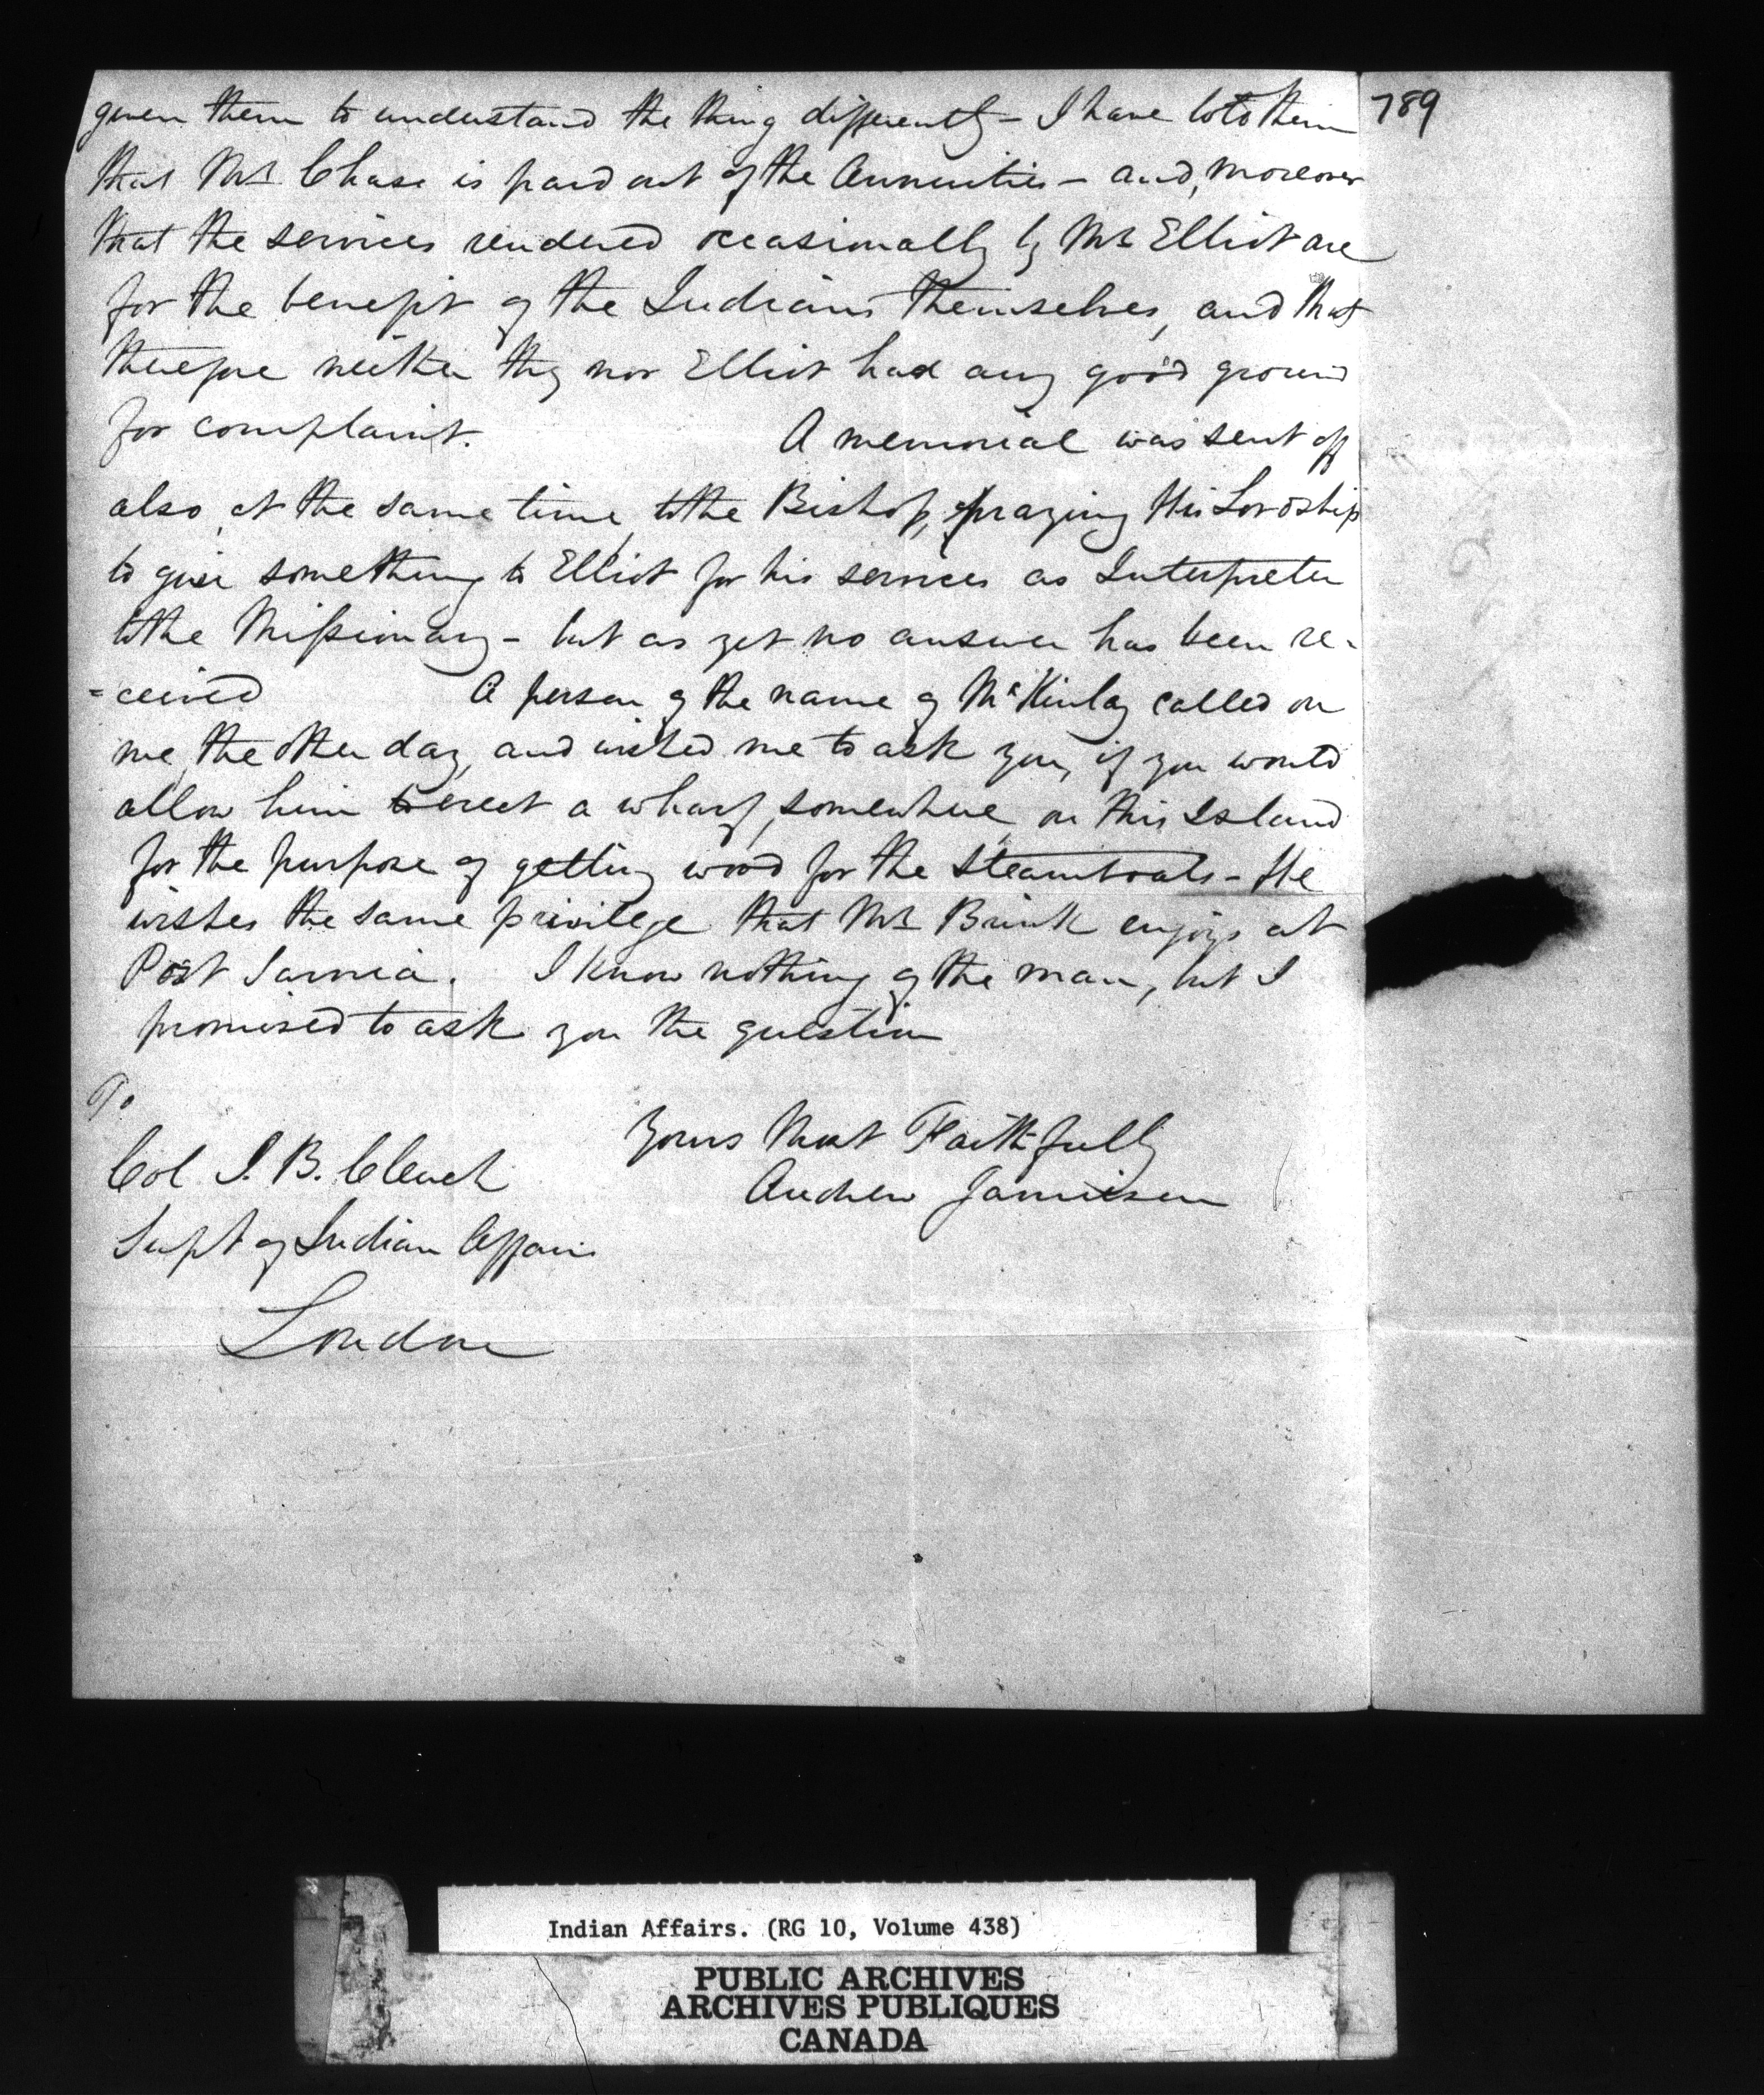 789
given them to understand the thing differently - I have told them
that Mr Chase is paid out of the Annuities - and, moreover
that the services rendered occasionally by Mr Elliot are
for the benefit of the Indians themselves, and that
therefore neither they nor Elliot had any good ground
for complaint. A memorial was sent off
also, at the same time, to the Bishop, praying His Lordship
to give something to Elliot for his services as Interpreter
to the Missionary - but as yet no answer has been re-
=ceived A person of the name of McKinlay called on
me, the other day, and wished me to ask you, if you would
allow him to erect a wharf, somewhere, on this Island
for the purpose of getting wood for the Steamboats - He
wishes the same privilege that Mr Brink enjoys at
Port Sarnia. I know nothing of the man, but I
promised to ask you the question
To
Yours Most Faithfully
Col J. B. Clench
Andrew Jamieson
Supt of Indian Affairs
London
Indian Affairs. (RG 10, Volume 438)
PUBLIC ARCHIVES
ARCHIVES PUBLIQUES
CANADA